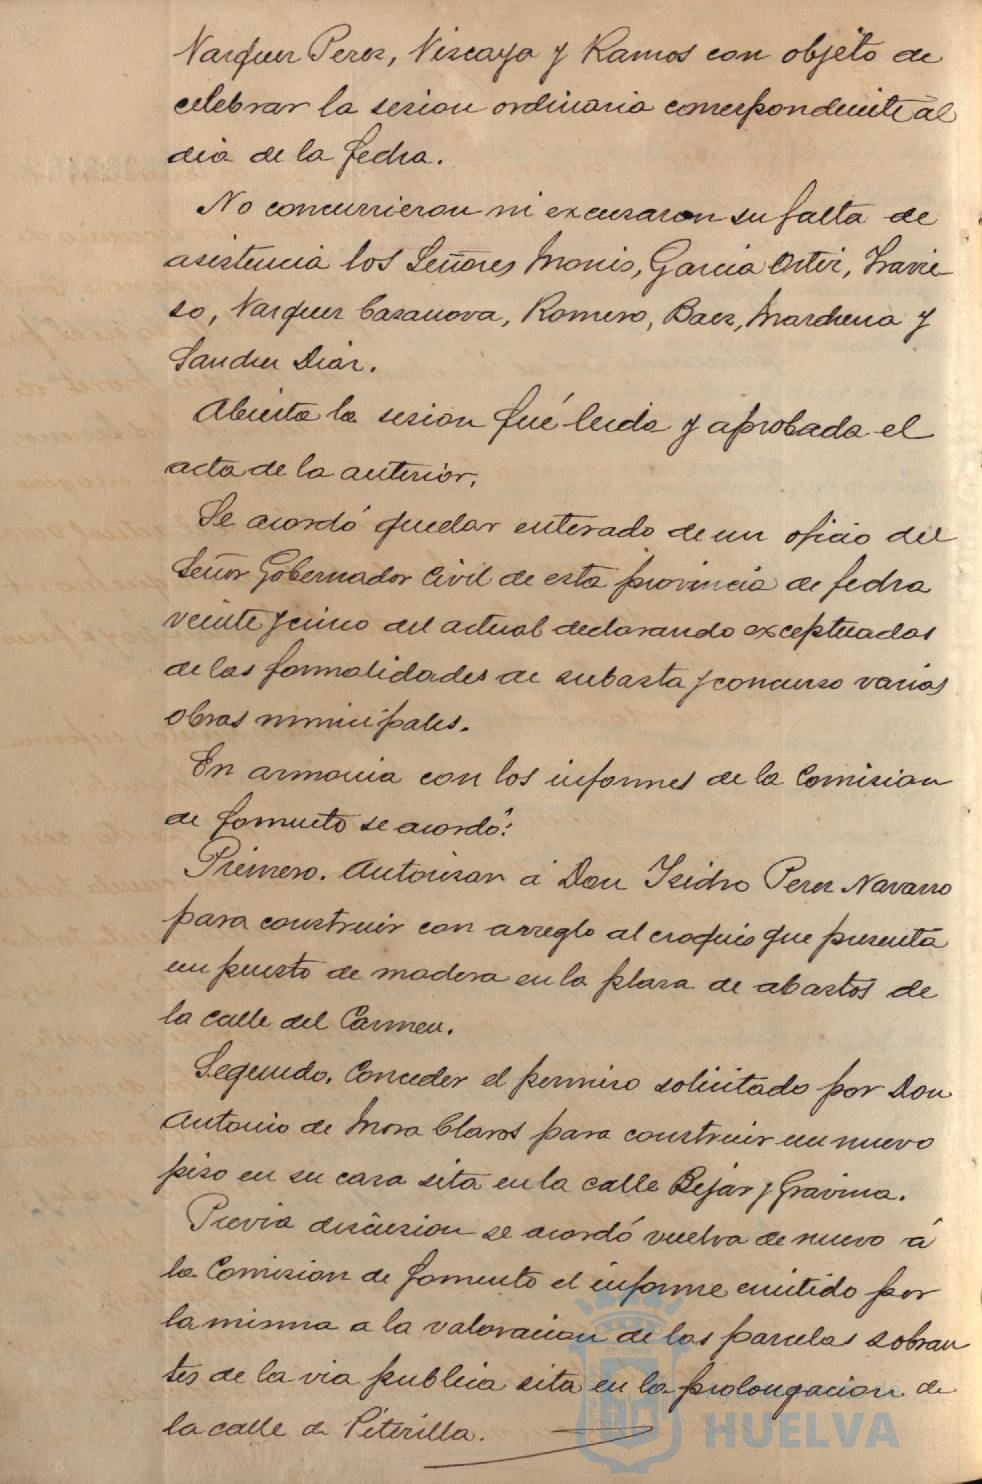 Vazquez Perez, Vizcaya y Ramos con objeto de
celebrar la sesion ordinaria correspondiente al
dia de la fecha.
No concurrieron ni excusaron su falta de
asistencia los Señores Monis, Garcia Ortiz, Travie-
so, Vazquez Casanova, Romero, Baez, Marchena y
Sanchez Diaz.
Abierta la sesion fué leida y aprobada el
acta de la anterior.
Se acordó quedar enterado de un oficio del
Señor Gobernador Civil de esta provincia de fecha
veinte y cinco del actual declarando exceptuadas
de las formalidades de subasta y concurso varias
obras municipales.
En armonia con los informes de la Comision
de fomento se acordó:
Primero. Autorizar á Don Isidro Perez Navarro
para construir con arreglo al croquis que presenta
un puesto de madera en la plaza de abastos de
la calle del Carmen.
Segundo. Conceder el permiso solicitado por Don
Antonio de Mora Claros para construir un nuevo
piso en su casa sita en la calle Bejar y Gravina.
Previa discusion se acordó vuelva de nuevo á
la Comision de fomento el informe emitido por
la misma a la valoracion de las parcelas sobran
tes de la via publica sita en la prolongacion de
la calle de Piterilla.
HUELVA